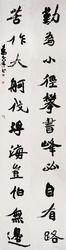 勤為小徑攀書峰必自有路
苦作大舸海豈怕無邊